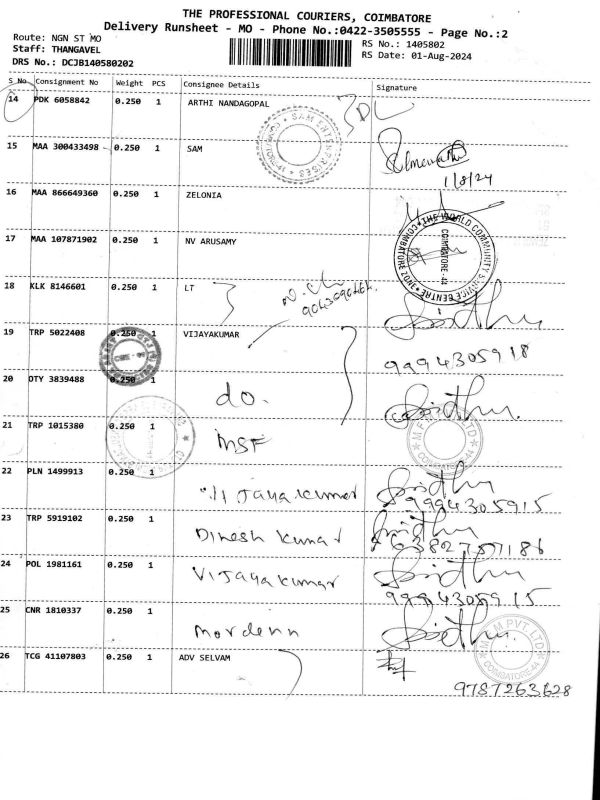 THE PROFESSIONAL COURIERS, COIMBATORE
Delivery Runsheet - MO - Phone No.:0422-3505555 - Page No.:2
Route: NGN ST MO
RS No.: 1405802
Staff: THANGAVEL
RS Date: 01-Aug-2024
DRS No.: DCJB140580202
S No Consignment No Weight PCS Consignee Details Signature
14 PDK 6058842 0.250 1 ARTHI NANDAGOPAL
SAM ENTERPRISES
15 MAA 300433498 0.250 1 SAM
1/8/24
16 MAA 866649360 0.250 1 ZELONIA
17 MAA 107871902 0.250 1 NV ARUSAMY
THE WORLD COMMUNITY SERVICE CENTRE
COIMBATORE-44
18 KLK 8146601 0.250 1 LT
19 TRP 5022408 0.250 1 VIJAYAKUMAR
9994305918
20 OTY 3839488 0.250 1 do.
21 TRP 1015380 0.250 1 MSF
22 PLN 1499913 0.250 1 Vijayakumar
9994305915
23 TRP 5919102 0.250 1 Dinesh kumar
24 POL 1981161 0.250 1 Vijayakumar
9994305915
25 CNR 1810337 0.250 1
PVT. LTD
COIMBATORE-44
26 TCG 41107803 0.250 1 ADV SELVAM
9787263628